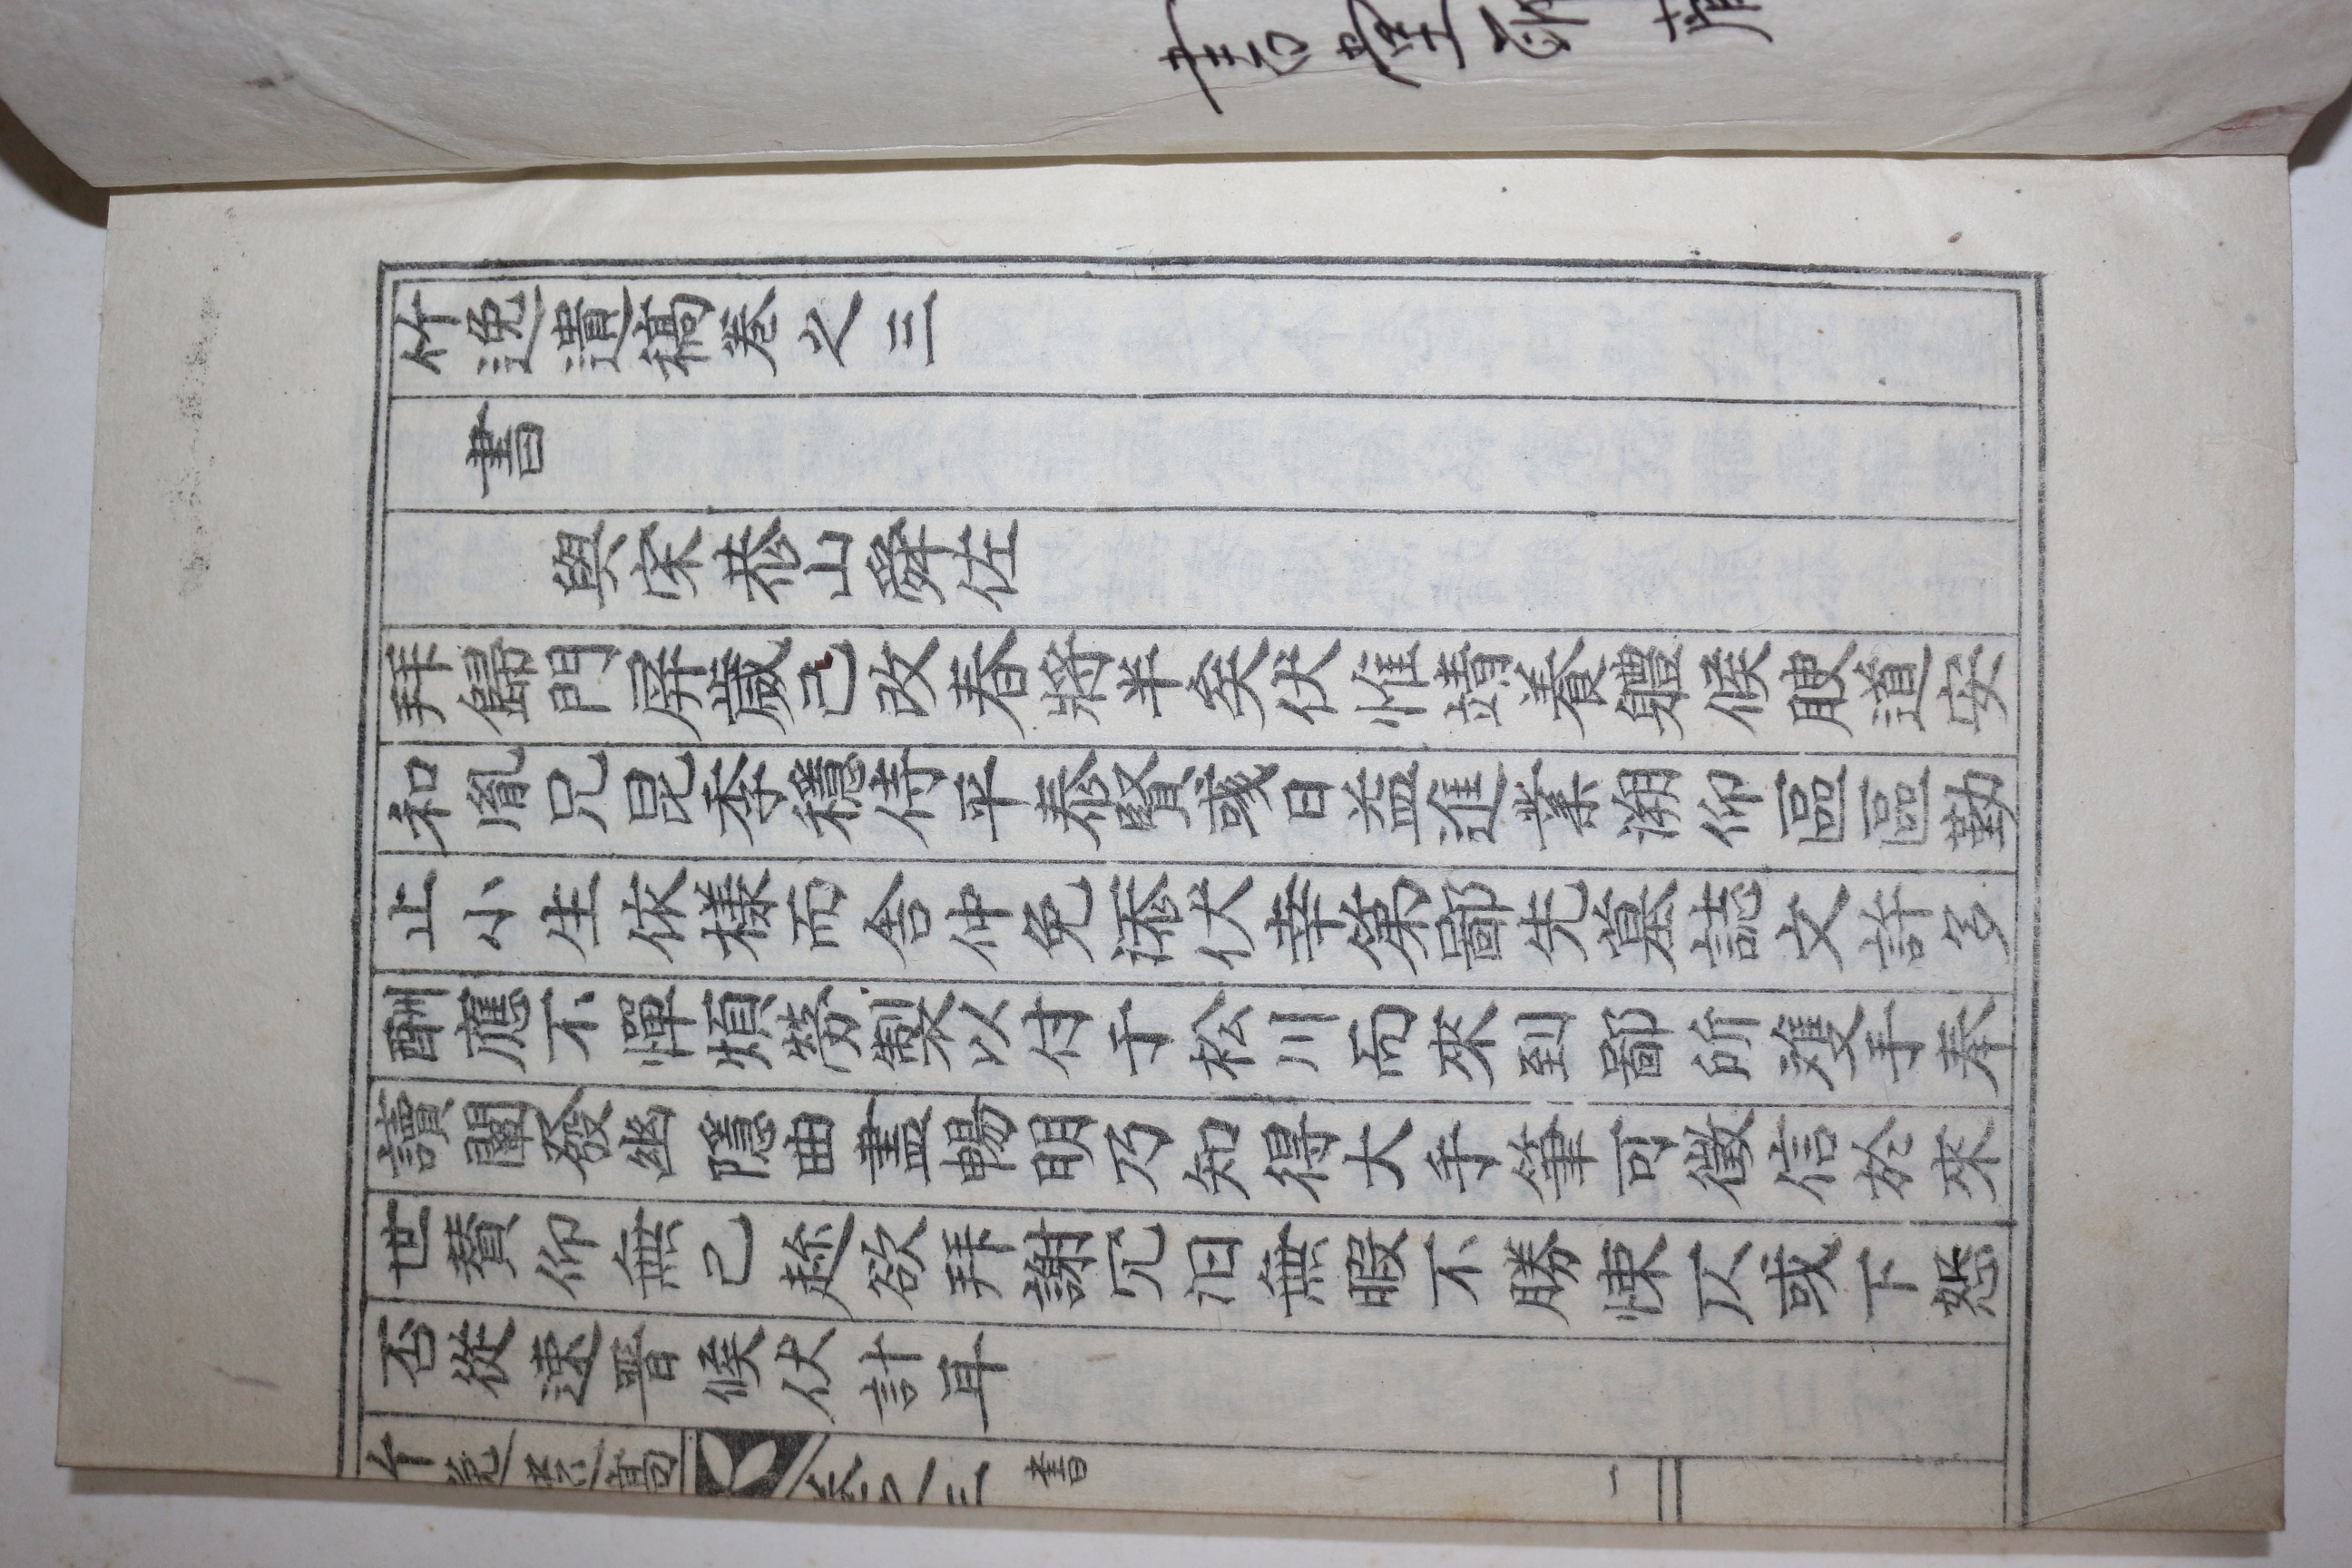 竹逸遺稿卷之三
書
與宋恭山舜佐
拜歸門屛歲己改春將半矣伏惟靖養軆候腴道安
和胤兄昆季穩侍平泰賢彧日益進業溯仰區區勤
止小生依樣而舍仲免添伏幸第鄙先墓誌文許多
酬應不憚煩勞製以付于松川而來到鄙所雙手奉
讀闡發幽隱曲盡暢明乃知得大手筆可徵信於來
世賛仰無己趂欲拜謝冗汨無暇不勝悚仄或下恕
否從速晋候伏計耳
竹逸遺稿 卷之三 書 一